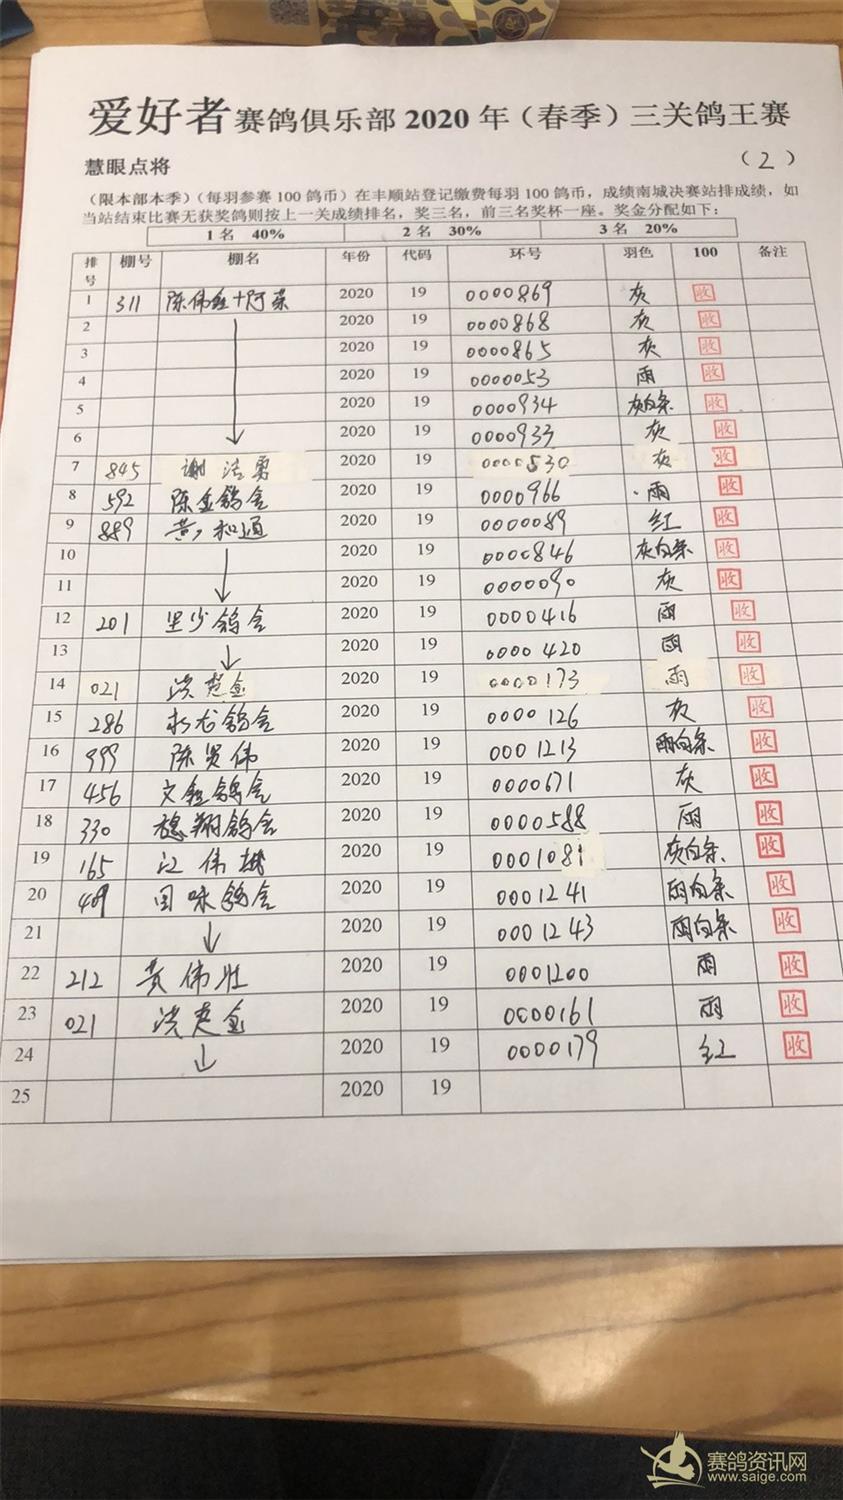 爱好者赛鸽俱乐部2020年（春季）三关鸽王赛
慧眼点将 （2）
（限本部本季）（每羽参赛100鸽币）在丰顺站登记缴费每羽100鸽币，成绩南城决赛站排成绩，如
当站结束比赛无获奖鸽则按上一关成绩排名，奖三名，前三名奖杯一座。奖金分配如下：
1名 40% 2名 30% 3名 20%
排号 棚号 棚名 年份 代码 环号 羽色 100 备注
1 311 陈伟 +阿 2020 19 0000869 灰 收
2 ↓ 2020 19 0000868 灰 收
3 2020 19 0000865 灰 收
4 2020 19 0000053 雨 收
5 2020 19 0000934 灰白条 收
6 2020 19 0000933 灰 收
7 845 谢 勇 2020 19 0000530 灰 收
8 592 陈金鸽舍 2020 19 0000966 雨 收
9 889 黄 和通 2020 19 0000089 红 收
10 ↓ 2020 19 0000846 灰白条 收
11 2020 19 0000090 灰 收
12 201 少鸽舍 2020 19 0000416 雨 收
13 ↓ 2020 19 0000420 雨 收
14 021 洪 金 2020 19 0000173 雨 收
15 286 鸽舍 2020 19 0000126 灰 收
16 999 陈贤伟 2020 19 0001213 雨白条 收
17 456 文 鸽舍 2020 19 0000671 灰 收
18 330 翔鸽舍 2020 19 0000588 雨 收
19 165 江伟 2020 19 0001081 灰白条 收
20 409 国味鸽舍 2020 19 0001241 雨白条 收
21 ↓ 2020 19 0001243 雨白条 收
22 212 黄伟壮 2020 19 0001200 雨 收
23 021 洪 金 2020 19 0000161 雨 收
24 ↓ 2020 19 0000179 红 收
25 2020 19
赛鸽资讯网
www.saige.com